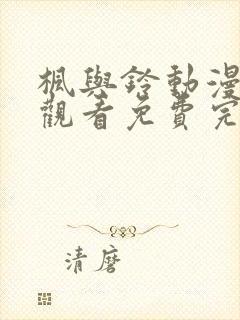 楓與鈴動漫
觀看免費完
清磨